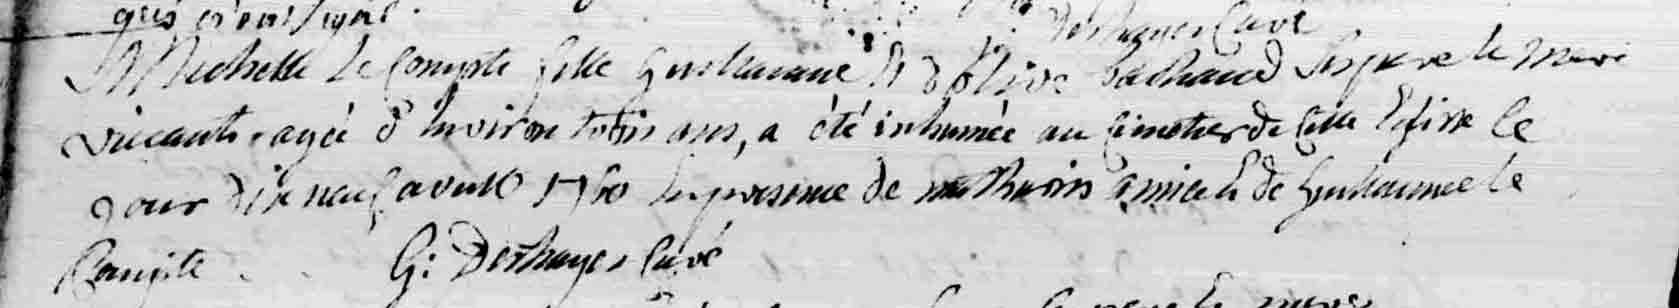 Deshayes Curé
Michelle Le Compte fille Guillaume et d'Olive Bachaud ses pere et mere
vivants, agée d'environ trois ans, a été inhumée au cimetier de cette Eglise le
jour dix neuf avril 1760 en presence de mathurin et de Guillaume le
Compte G: Deshayes Curé